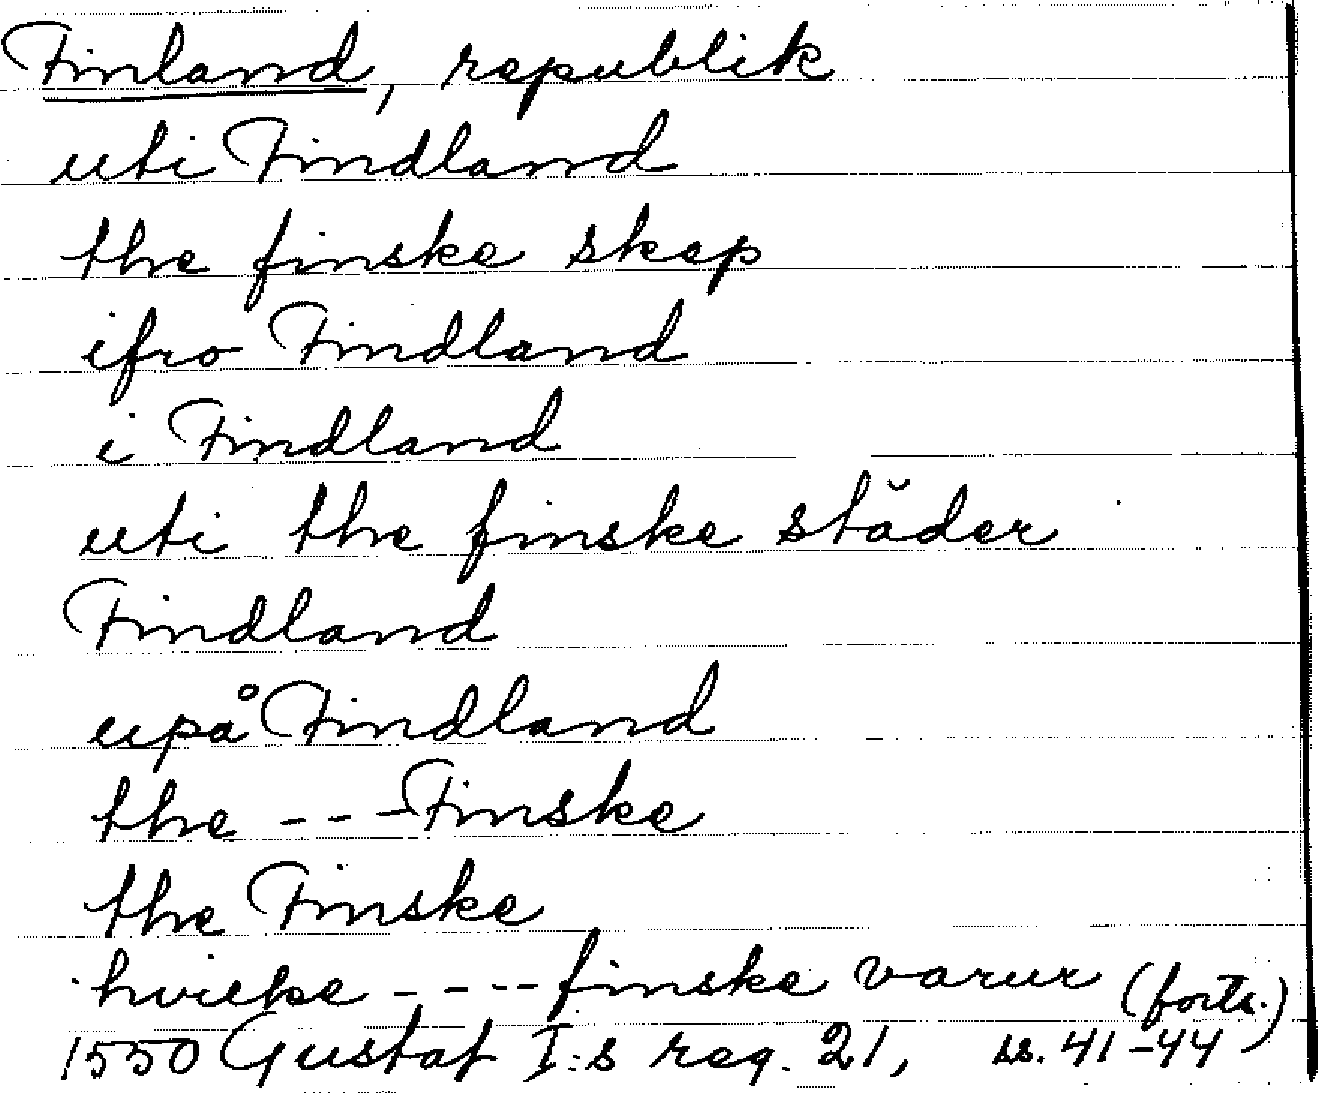 Finland, republik
uti Findland
the finske skep
ifro Findland
i Findland
uti the finske städer
Findland
upå Findland
the --- Finske
the Finske
hvilke ---- finske varur (forts.)
1550 Gustaf I:s reg. 21, ss. 41-44